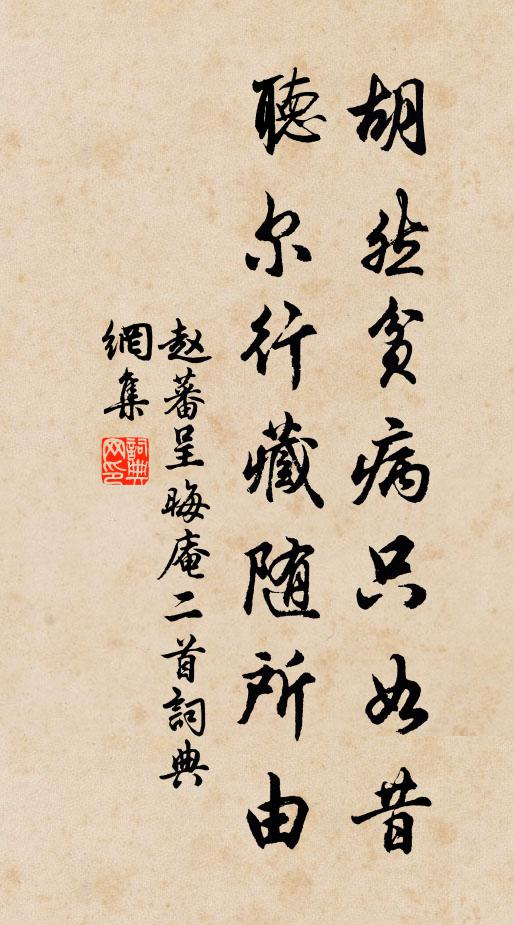 胡然贫病只如昔
聽尔行藏随所由
赵蕃呈晦庵二首詞典
網集
詞典
网印